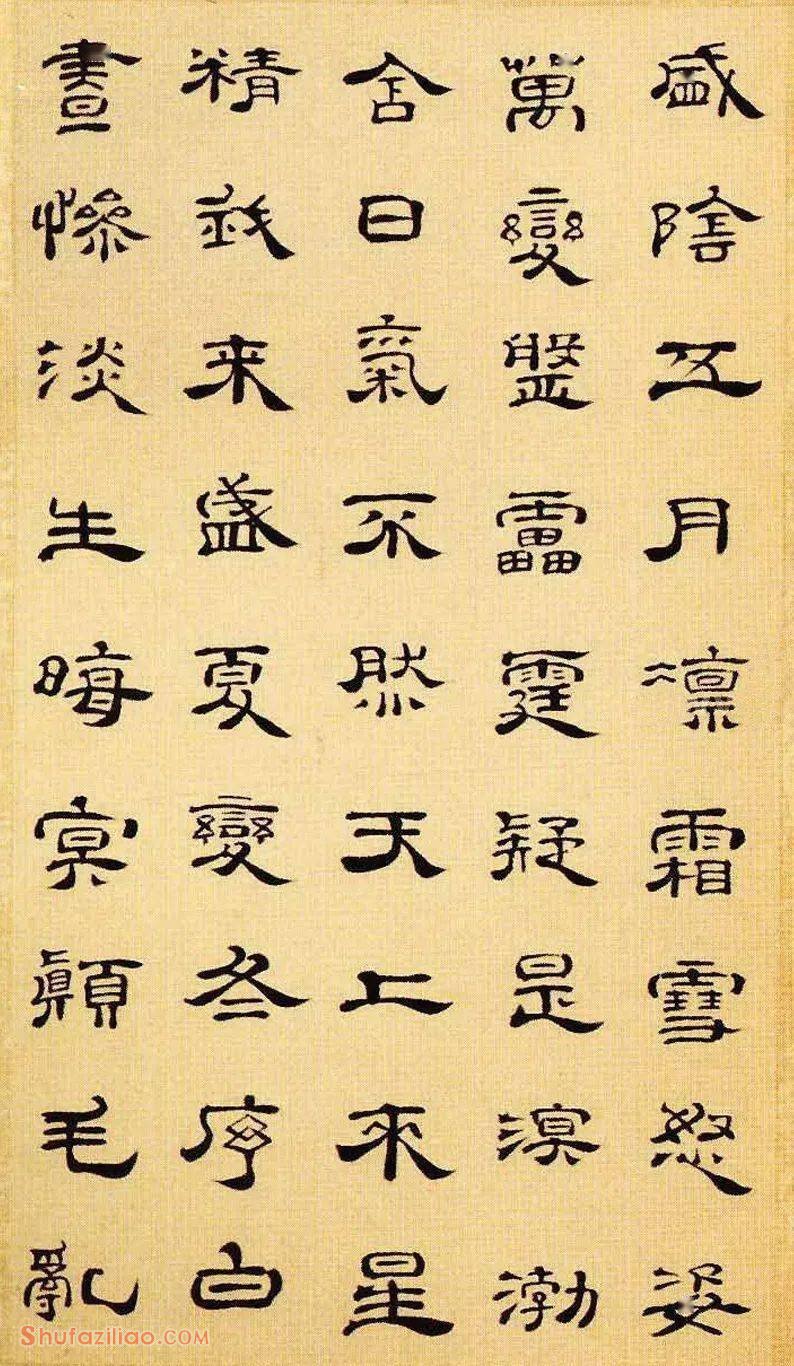 盛陰五月凛霜雪怒姿
萬變盤雷霆疑是溟渤
含日氣不然天上來星
精我来盛夏變冬序白
晝慘淡生晦冥顛毛亂
Shufaziliao.COM